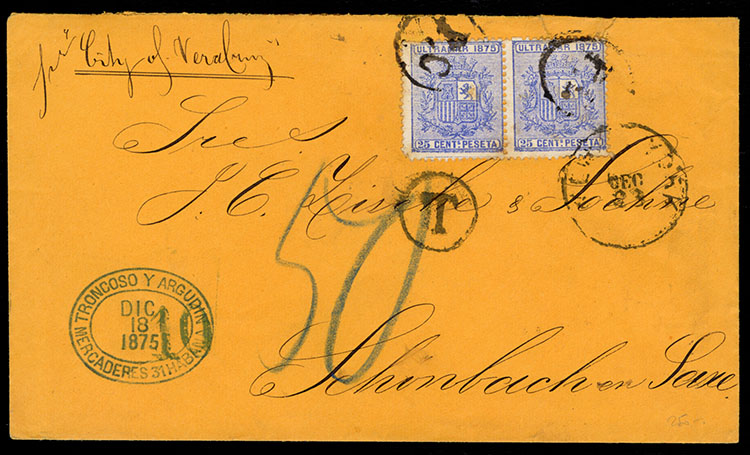 pr "City of Veracruz"
ULTRAMAR 1875
25 CENT. PESETA
ULTRAMAR 1875
25 CENT. PESETA
Sres.
J. C. & Soehne
NEW YORK
DEC
22
T
50
TRONCOSO Y ARGUDIN
DIC
18
1875
MERCADERES 31 HABANA
10
Schonbach en Saxe